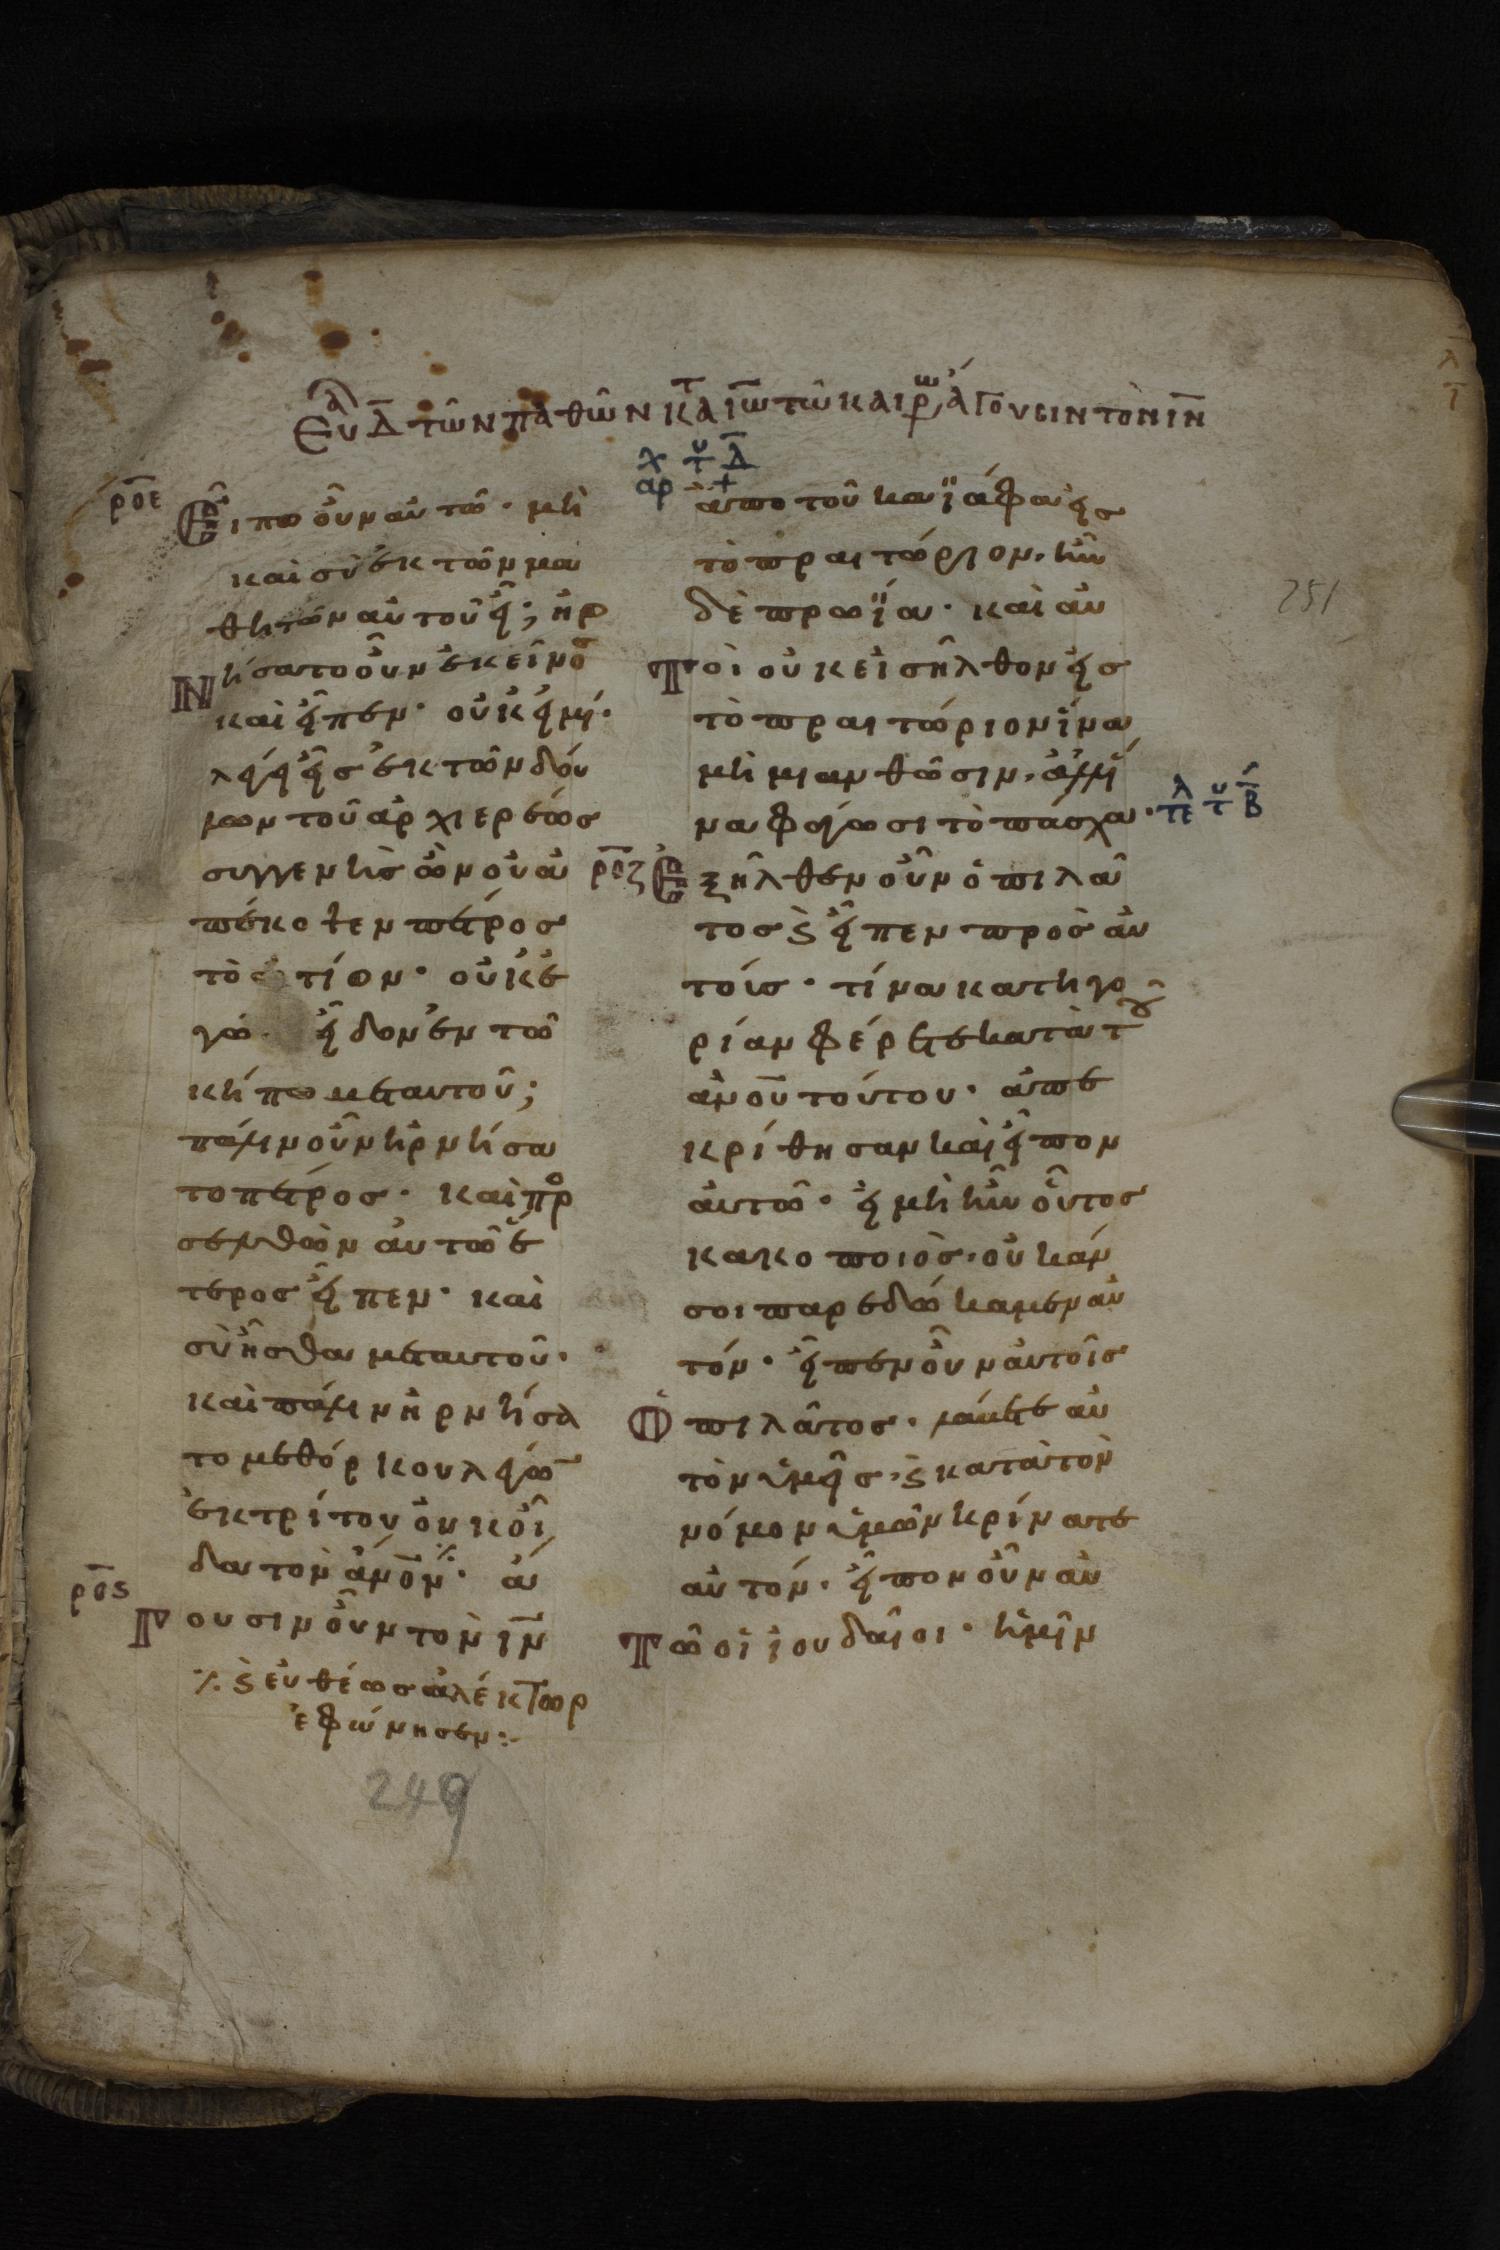 Εὐα Δ τῶν παθῶν κτ α ἰω τῶ καιρῶ ἄγουσιν τὸν ιν
ροε Εἶπον οὖν αὐτῶ· μὴ
καὶ σὺ ἐκ τῶν μα
θητῶν αὐτοῦ εἶ; ἠρ
νήσατο οὖν ἐκεῖνος
καὶ εἶπεν· οὐκ εἰμί·
λέγει εἷς ἐκ τῶν δού
λων τοῦ ἀρχιερέως
συγγενὴς ὢν οὗ ἀ
πέκοψεν πέτρος
τὸ ὠτίον· οὐκ ἐ
γώ εἶδον ἐν τῶ
κήπω μετ αυτοῦ;
πάλιν οὖν ἠρνήσα
το πέτρος· καὶ προ
σελθὼν αὐτῶ ἕ
τερος εἶπεν· καὶ
σὺ ἦσθα μετ αυτοῦ·
καὶ πάλιν ἠρνήσα
το μεθόρκου λέγων
ἐκ τρίτου οὐκ οἶ
δα τὸν ἄνον ٪· ἄ
ρος γουσιν οὖν τὸν ιν
٪ ϛ εὐθέως ἀλέκτωρ
ἐφώνησεν:
249
χ υτ Δ
αρ +
ἀπο τοῦ καϊάφα εἰς
τὸ πραιτώριον, ἦν
δὲ πρωΐα· καὶ αὐ
τοὶ οὐκ εἰσῆλθον εἰς
τὸ πραιτώριον ἵνα
μὴ μιανθῶσιν, ἀλλ ἵ
να φάγωσι τὸ πάσχα· τελ υτ Β
ροζ Ἐξῆλθεν οὖν ὁ πιλᾶ
τος ϛ εἶπεν πρὸς αὐ
τούς· τίνα κατηγο
ρίαν φέρετε κατὰ τοῦ
ἀνου τούτου· ἀπε
κρίθησαν καὶ εἶπον
αὐτῶ· εἰ μὴ ἦν οὗτος
κακοποιὸς, οὐκ ἄν
σοι παρεδώκαμεν αὐ
τόν· εἶπεν οὖν αὐτοῖς
Ὁ πιλᾶτος· λάβετε αὐ
τὸν ὑμεῖς, ϛ κατὰ τὸν
νόμον ὑμῶν κρίνατε
αὐτόν· εἶπον οὖν αὐ
τῶ οἱ ἰουδαῖοι· ἡμῖν
251